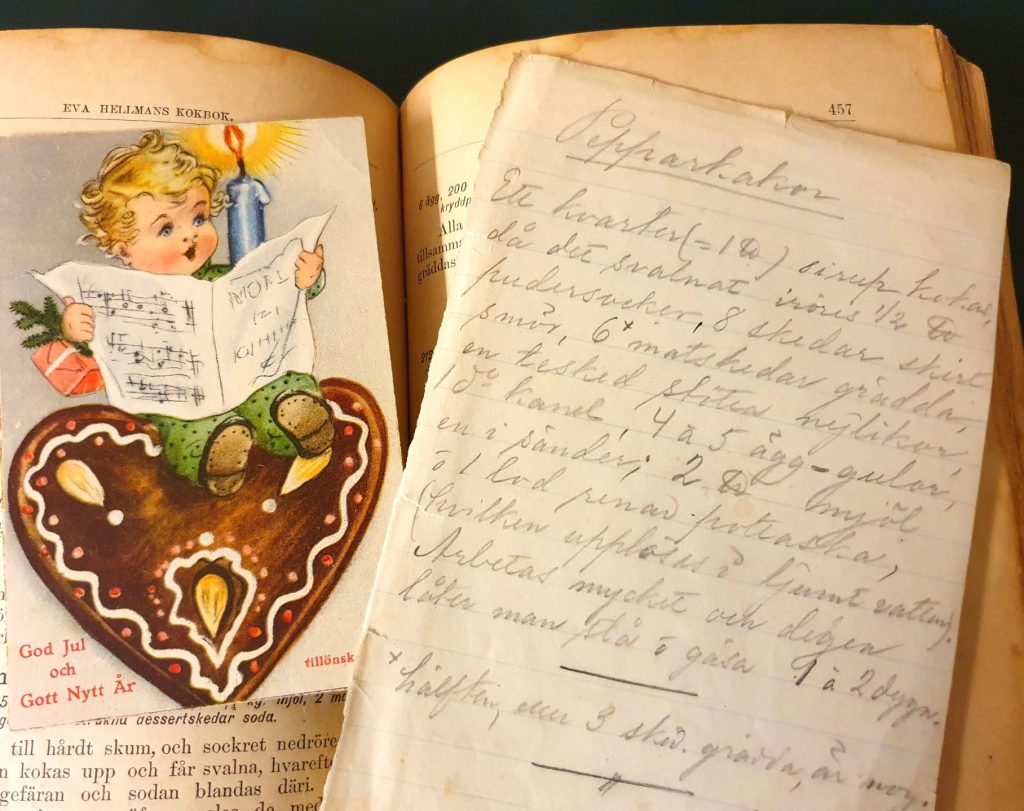 EVA HELLMANS KOKBOK.
457
6 ägg, 200
kryddp
Alla
tillsamma
gräddas
God Jul
och
Gott Nytt År
tillönsk
Pepparkakor
Ett kvarter (=1 ℔) sirup kokas,
då det svalnat iröres 1/2 ℔
pudersocker, 8 skedar skirt
smör, 6ˣ matskedar grädda,
en tesked stötta nejlikor,
1 do kanel, 4 à 5 ägg-gulor,
en i sänder; 2 ℔ mjöl
o 1 lod renad pottaska,
(hvilken upplöses i ljumt vatten).
Arbetas mycket och degen
låter man stå o jäsa 1 à 2 dygn.
ˣ hälften, eller 3 sked. grädda, är nog.
kg. mjöl, 2
dessertskedar soda.
till hårdt skum, och sockret nedröre
n kokas upp och får svalna, hvareft
gefäran och sodan blandas däri.